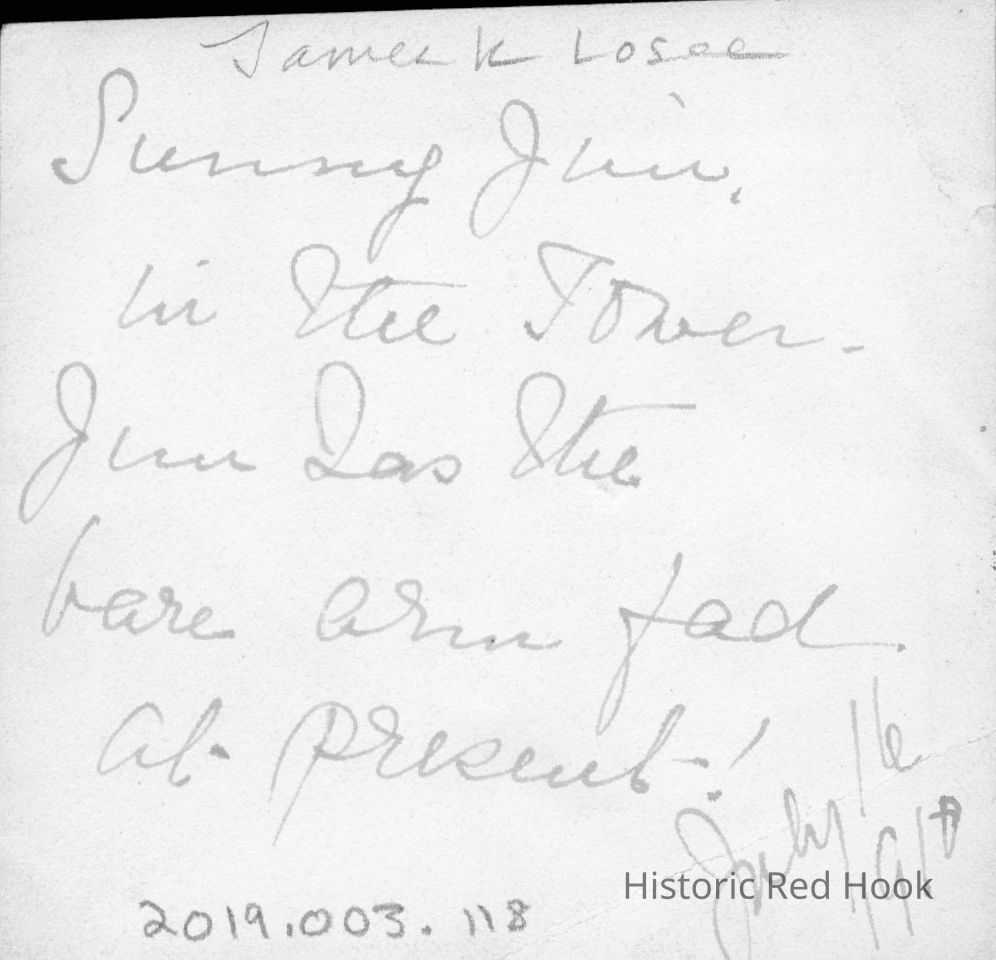 James K Losee
Sunny Jim.
in the Tower.
Jim has the
bare arm fad
at present!
July 16
Historic Red Hook
2019.003.118